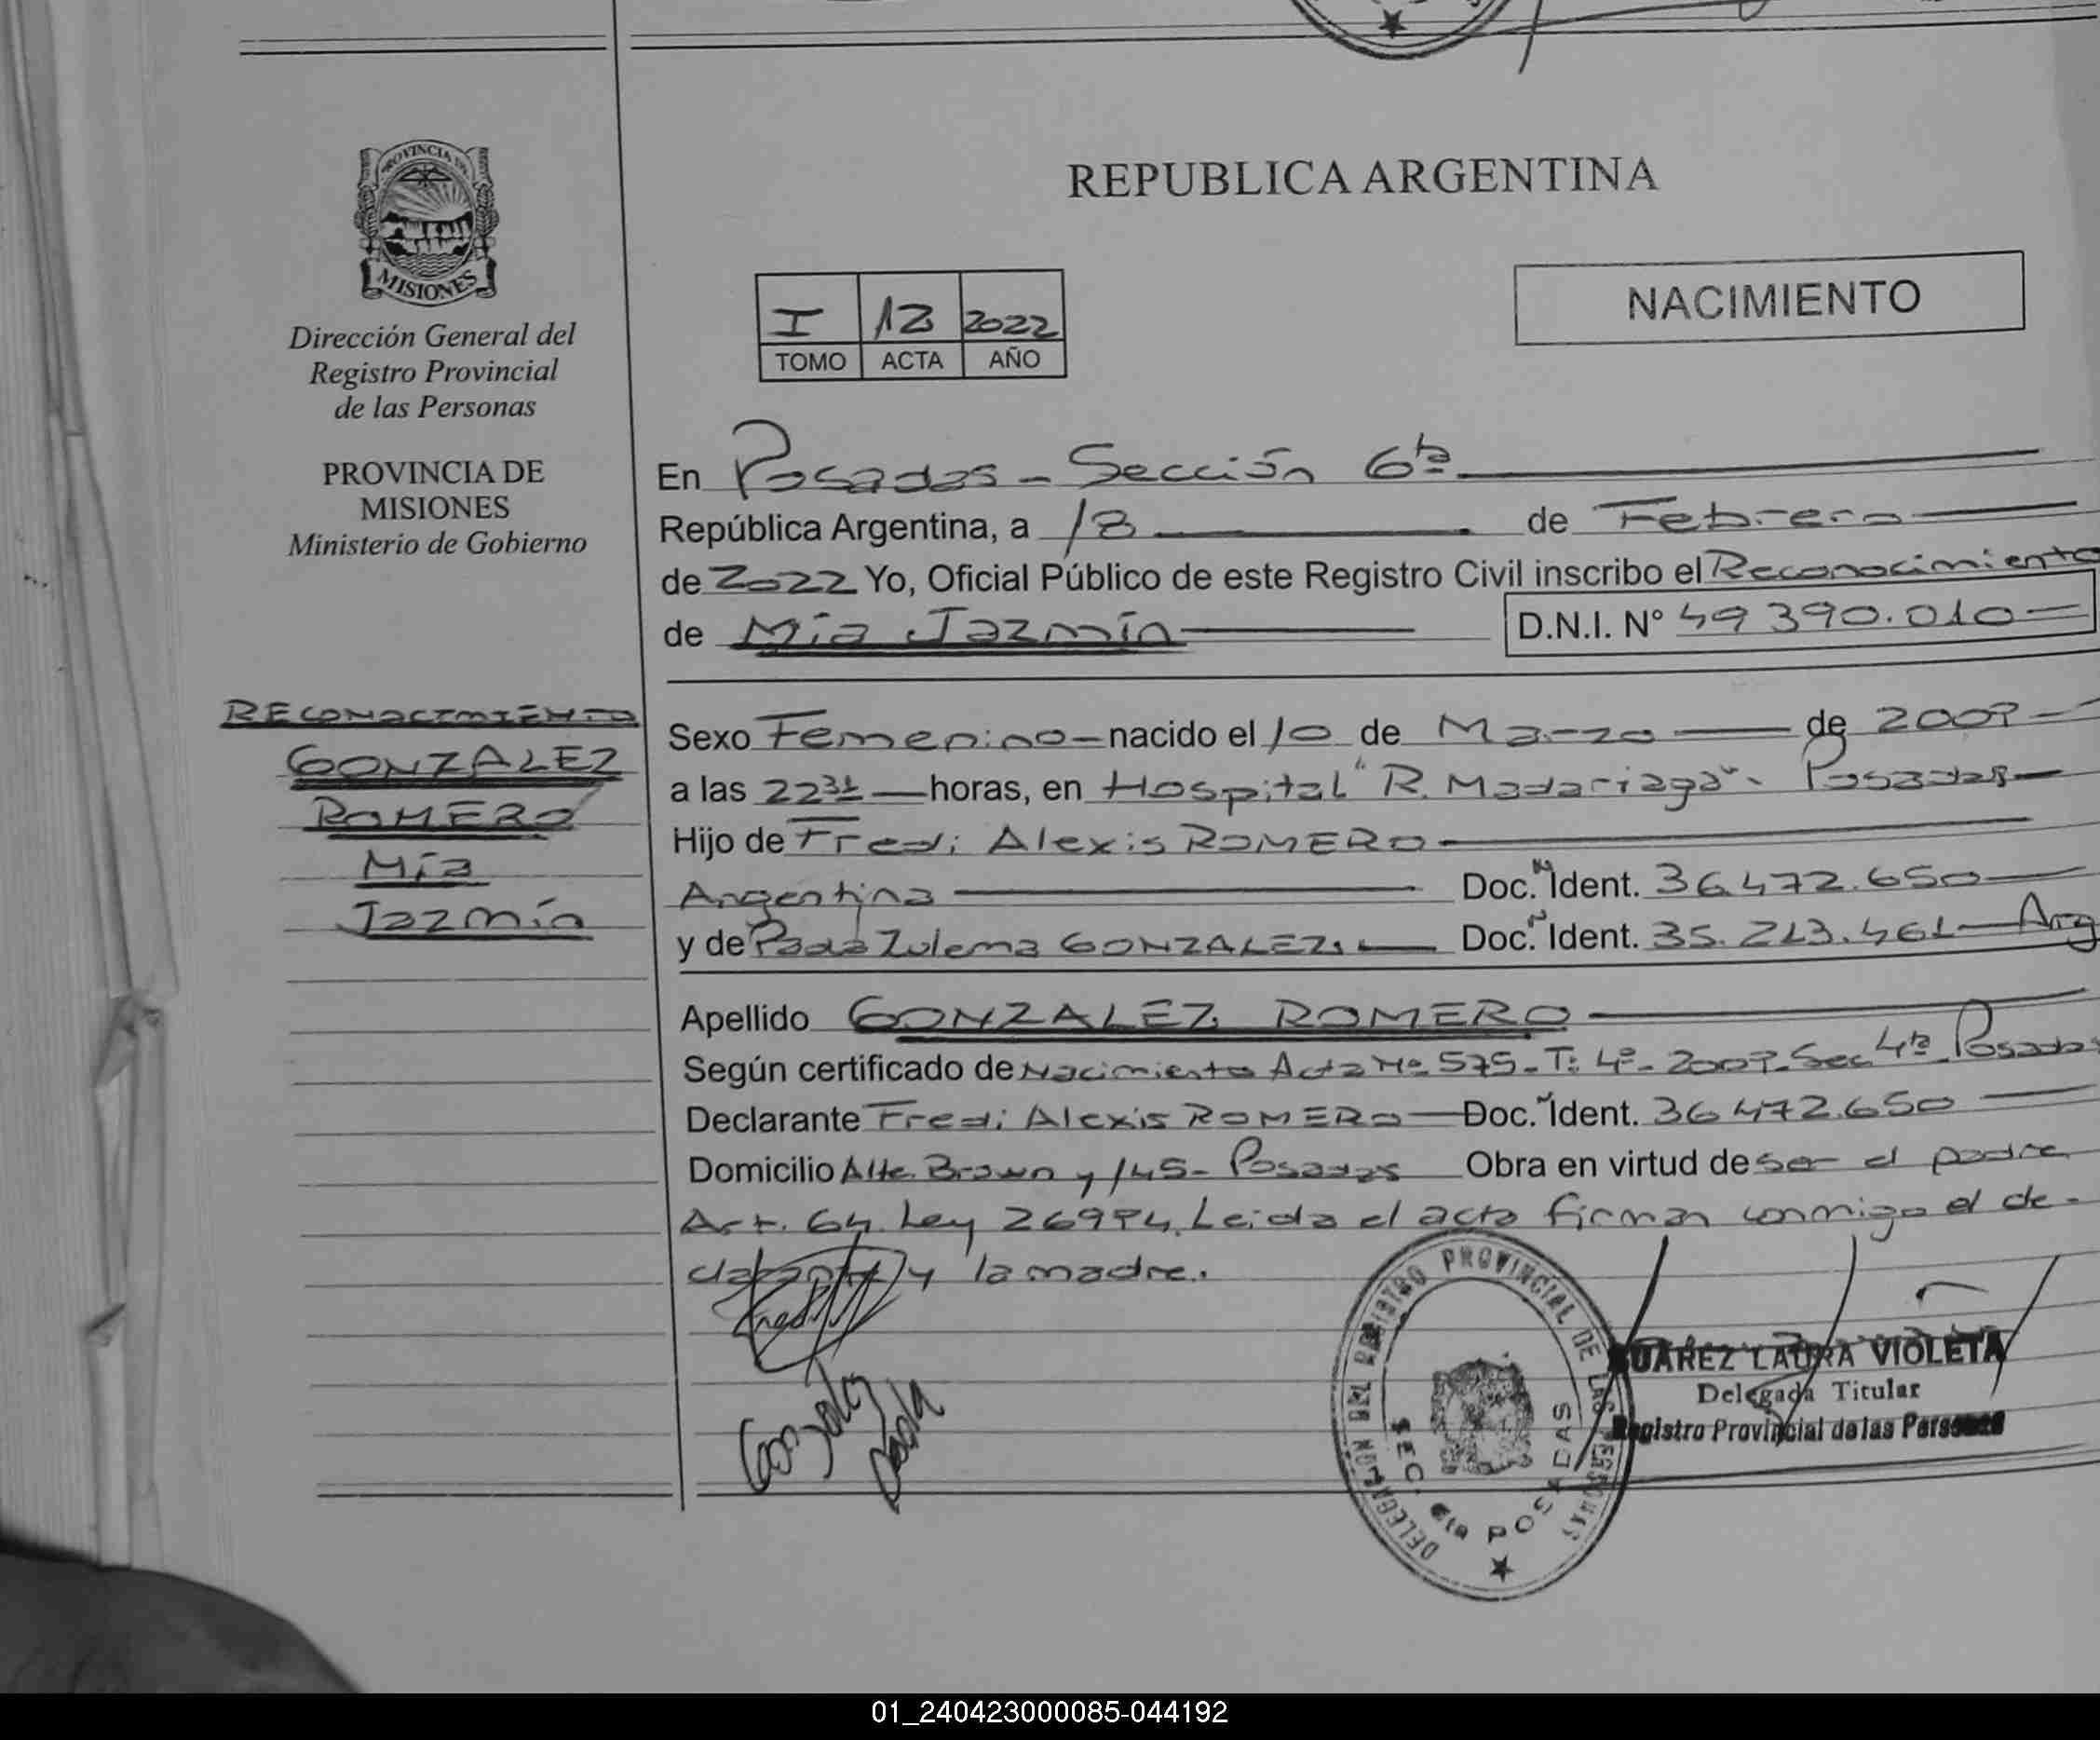 PROVINCIA DE
MISIONES
Dirección General del
Registro Provincial
de las Personas
PROVINCIA DE
MISIONES
Ministerio de Gobierno
RECONOCIMIENTO
GONZALEZ
ROMERO
Mía
Jazmín
REPUBLICA ARGENTINA
I 13 2022
TOMO ACTA AÑO
NACIMIENTO
En Posadas - Sección 6ta
República Argentina, a 18 de Febrero
de 2022 Yo, Oficial Público de este Registro Civil inscribo el Reconocimiento
de Mía Jazmín D.N.I. Nº 49 390.010
Sexo Femenino nacido el 10 de Marzo de 2009
a las 22 31 horas, en Hospital "R. Madariaga" - Posadas
Hijo de Fredi Alexis ROMERO
Argentina Doc. Ident. 36.472.650
y de Paola Zulema GONZALEZ Doc. Ident. 35.213.461 - Arg
Apellido GONZALEZ ROMERO
Según certificado de Nacimiento Acta Nº 575 - T: 4º - 2009 - Sec 4ta Posadas
Declarante Fredi Alexis ROMERO Doc. Ident. 36 472.650
Domicilio Alte. Brown y 145 - Posadas Obra en virtud de ser el padre
Art. 64. Ley 26994. Leída el acta firman conmigo el de-
clarante y la madre.
Gonzalez
Paola
DELEGACION DEL REGISTRO PROVINCIAL DE LAS PERSONAS
SEC. 6ta POSADAS
SUAREZ LAURA VIOLETA
Delegada Titular
Registro Provincial de las Personas
01_240423000085-044192